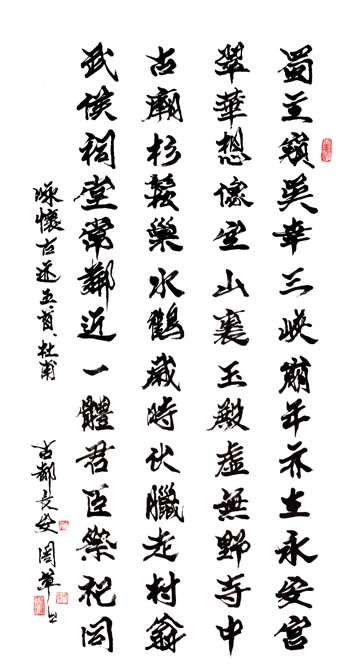 蜀主窺吳幸三峽崩年亦在永安宮
翠華想像空山裏玉殿虛無野寺中
古廟杉鬆巢水鶴歲時伏臘走村翁
武侯祠堂常鄰近一體君臣祭祀同
咏懷古迹五首 杜甫
古都長安 周